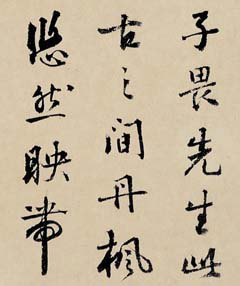 子畏先生此
古之间丹楓
悠然映带